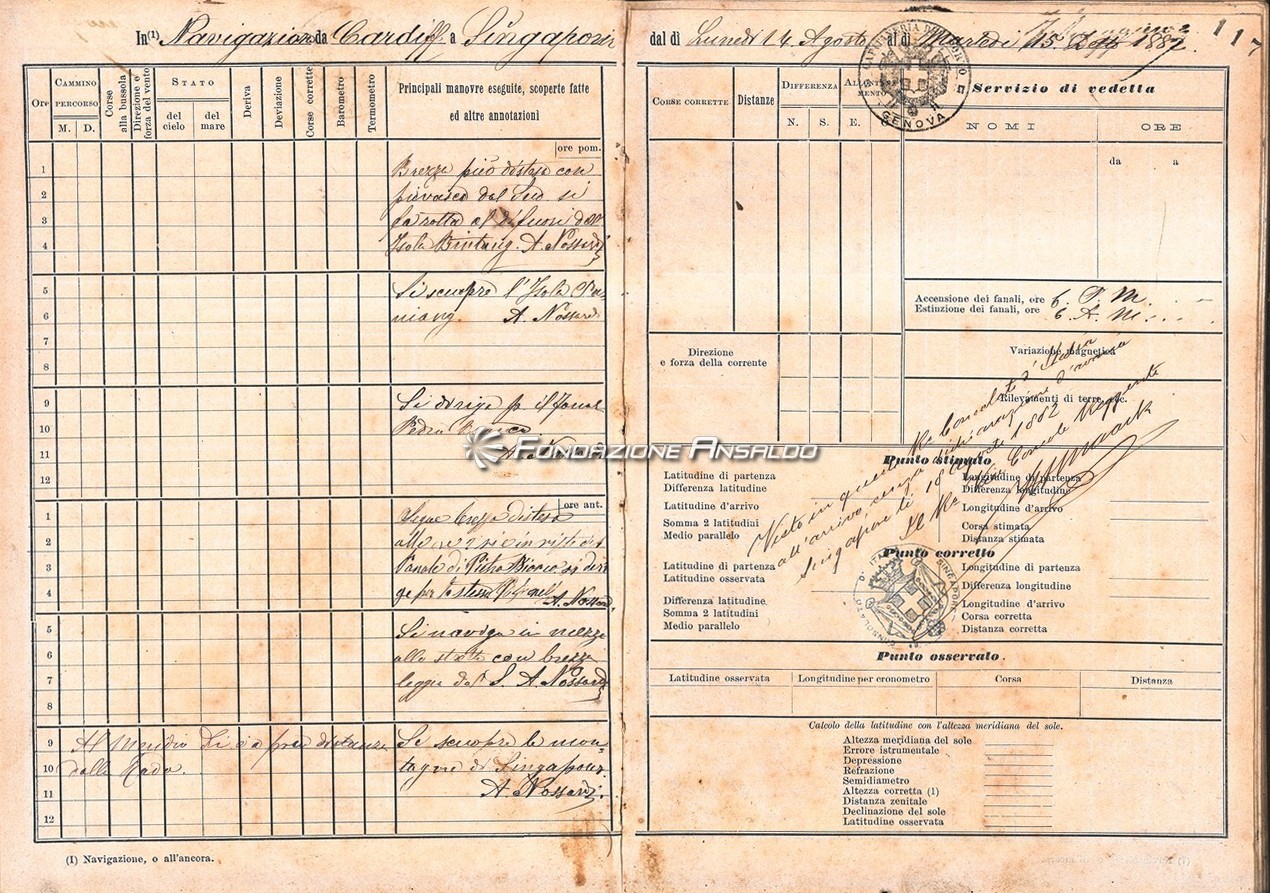 In(1) Navigazione da Cardiff a Singapour
dal di Lunedi 14 Agosto al di Martedi 15 1882
117
CAPITANERIA DEL PORTO DI
GENOVA
Ore
CAMMINO PERCORSO
M. D.
Corse alla bussola
Direzione e forza del vento
STATO
del cielo
del mare
Deriva
Deviazione
Corse corrette
Barometro
Termometro
Principali manovre eseguite, scoperte fatte
ed altre annotazioni
ore pom.
1
2
3
4
5
6
7
8
9
10
11
12
Brezza più distesa con
piovasco dal Sud si
fa rotta al di fuori dell'
Isola Bintang. A. Nossardi
Si scuopre l'Isola
A. Nossardi
Si dirige p. il fanal
Pedra
ore ant.
1
2
3
4
5
6
7
8
9
10
11
12
Segue brezza distesa
alle ore 2 si è in vista del
Fanale di
A. Nossardi
Si naviga in mezzo
allo stretto con brezza
leggera dal S. A. Nossardi
Al Meridio distanza
dalla Rada.
Si scuopre le mon-
tagne di Singapour.
A. Nossardi.
(1) Navigazione, o all'ancora.
CORSE CORRETTE
Distanze
DIFFERENZA
N. S. E.
Servizio di vedetta
NOMI
ORE
da a
Accensione dei fanali, ore 6. P. M.
Estinzione dei fanali, ore 6. A. M.
Direzione
e forza della corrente
Variazione magnetica
Rilevamenti di terre, ecc.
Visto in questo Ro Consolato d'Italia
all'arrivo, senza dichiarazione d'avaria
Singapore li 18 Agosto 1882
Il Console Reggente
FONDAZIONE ANSALDO
Punto stimato
Latitudine di partenza
Differenza latitudine
Latitudine d'arrivo
Somma 2 latitudini
Medio parallelo
Longitudine di partenza
Differenza longitudine
Longitudine d'arrivo
Corsa stimata
Distanza stimata
Punto corretto
Latitudine di partenza
Latitudine osservata
Differenza latitudine
Somma 2 latitudini
Medio parallelo
Longitudine di partenza
Differenza longitudine
Longitudine d'arrivo
Corsa corretta
Distanza corretta
CONSOLATO D'ITALIA SINGAPORE
Punto osservato
Latitudine osservata
Longitudine per cronometro
Corsa
Distanza
Calcolo della latitudine con l'altezza meridiana del sole.
Altezza meridiana del sole
Errore istrumentale
Depressione
Refrazione
Semidiametro
Altezza corretta (1)
Distanza zenitale
Declinazione del sole
Latitudine osservata